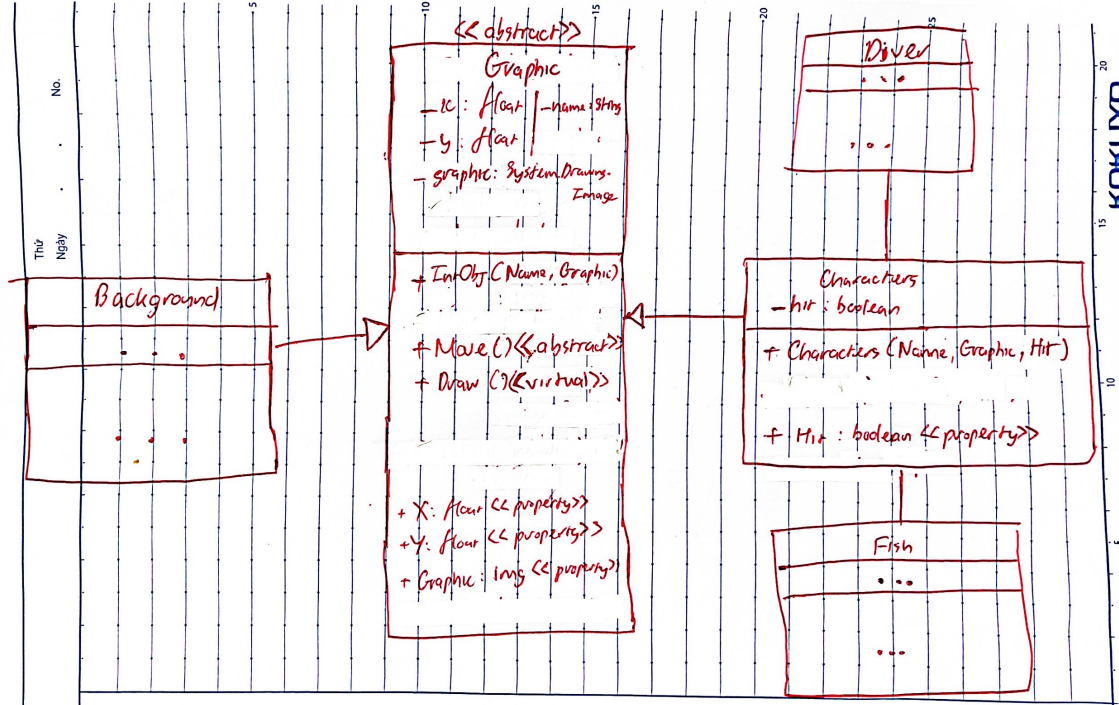 <<abstract>>
Graphic
- x : float | - name : String
- y : float
- graphic : System.Drawing.
Image
+ IntObj (Name, Graphic)
+ Move () <<abstract>>
+ Draw () <<virtual>>
+ X : float <<property>>
+ Y : float <<property>>
+ Graphic : img <<property>>
Background
...
...
Diver
...
...
Characters
- hit : boolean
+ Characters (Name, Graphic, Hit)
+ Hit : boolean <<property>>
Fish
...
...
No.
Thứ
Ngày
5
10
15
20
25
20
15
10
5